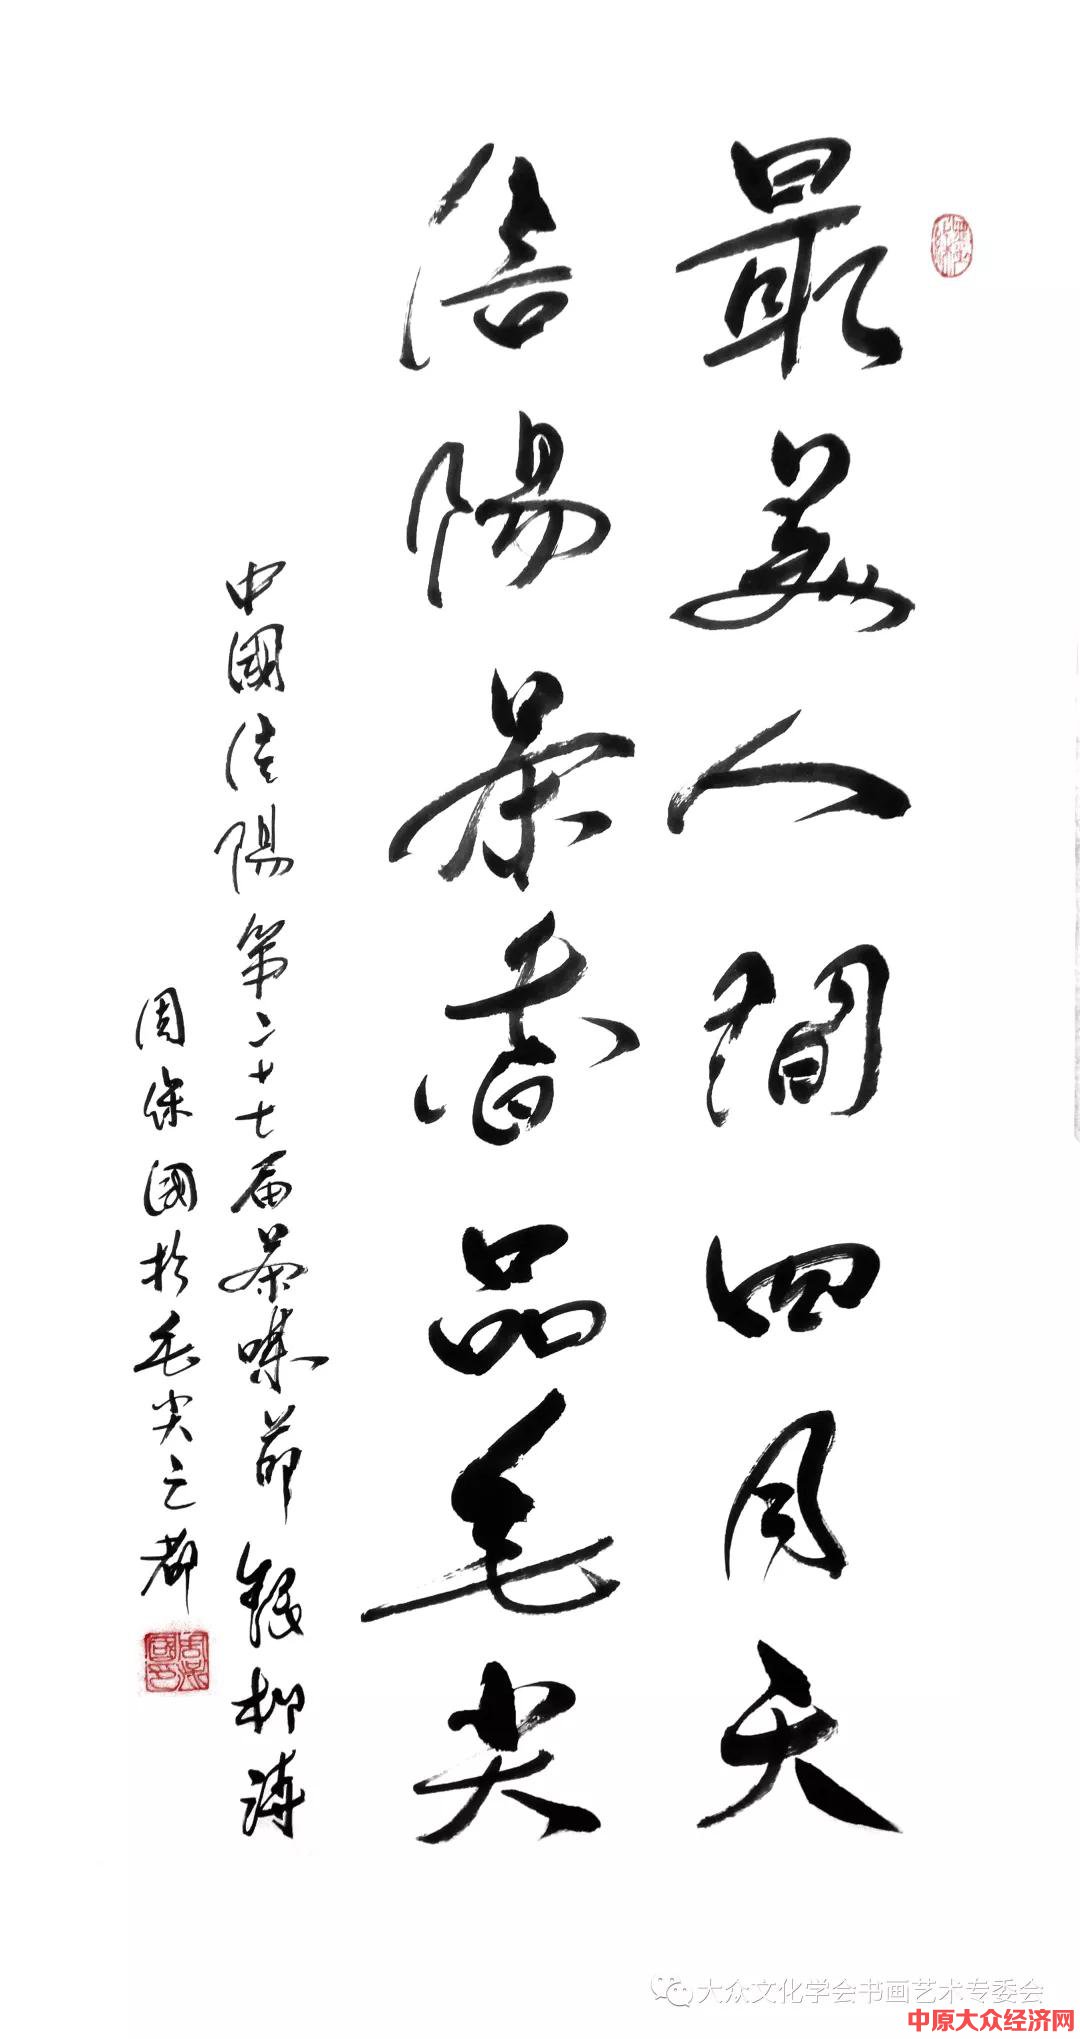 最美人間四月天
信陽茶香品毛尖
中國信陽第二十七届茶節 柳
周保國於毛尖之都
大众文化学会书画艺术专委会
中原大众经济网